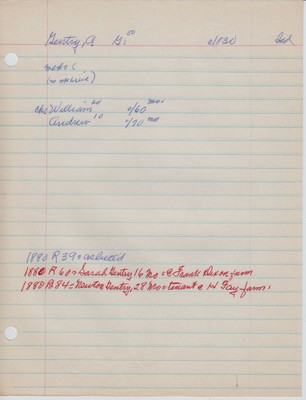 Gentry, A G. 50 c/130 Ind
(no marie)
che William 20 c/60 Mo.
Andrew 10 c/70 mo
1880 R 39 =
1880 R 60 = Sarah Gentry 16 Mo = @ Frank Dixon farm
1880 R 84 = Newton Gentry, 28 Mo = tenant @ W Gay farm.